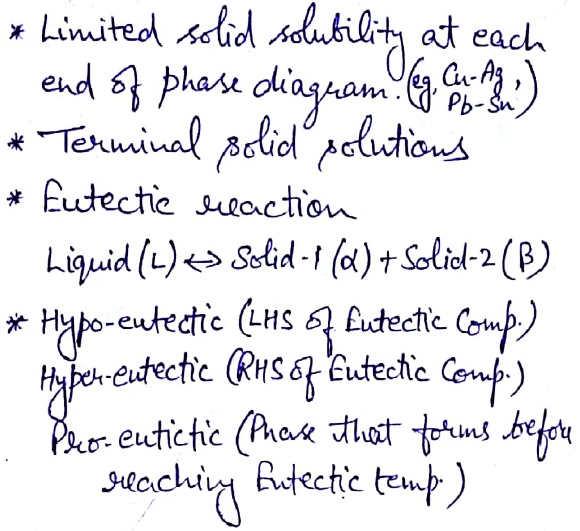 * Limited solid solubility at each
end of phase diagram. (eg, Cu-Ag,
Pb-Sn)
* Terminal solid solutions
* Eutectic reaction
Liquid (L) ↔ Solid-1 (α) + Solid-2 (β)
* Hypo-eutectic (LHS of Eutectic Comp.)
Hyper-eutectic (RHS of Eutectic Comp.)
Pro-eutictic (Phase that forms before
reaching Eutectic temp.)